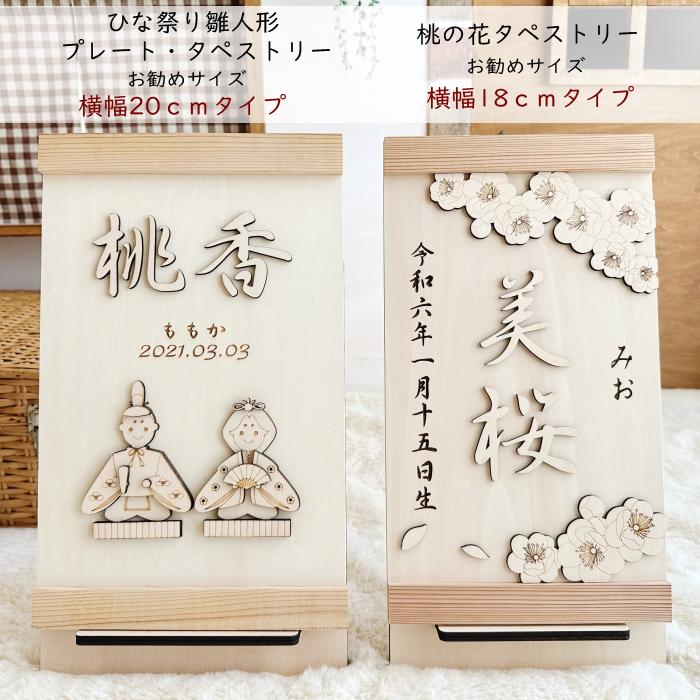 ひな祭り雛人形
プレート・タペストリー
お勧めサイズ
横幅20cmタイプ
桃の花タペストリー
お勧めサイズ
横幅18cmタイプ
桃香
ももか
2021.03.03
みお
美桜
令和六年一月十五日生